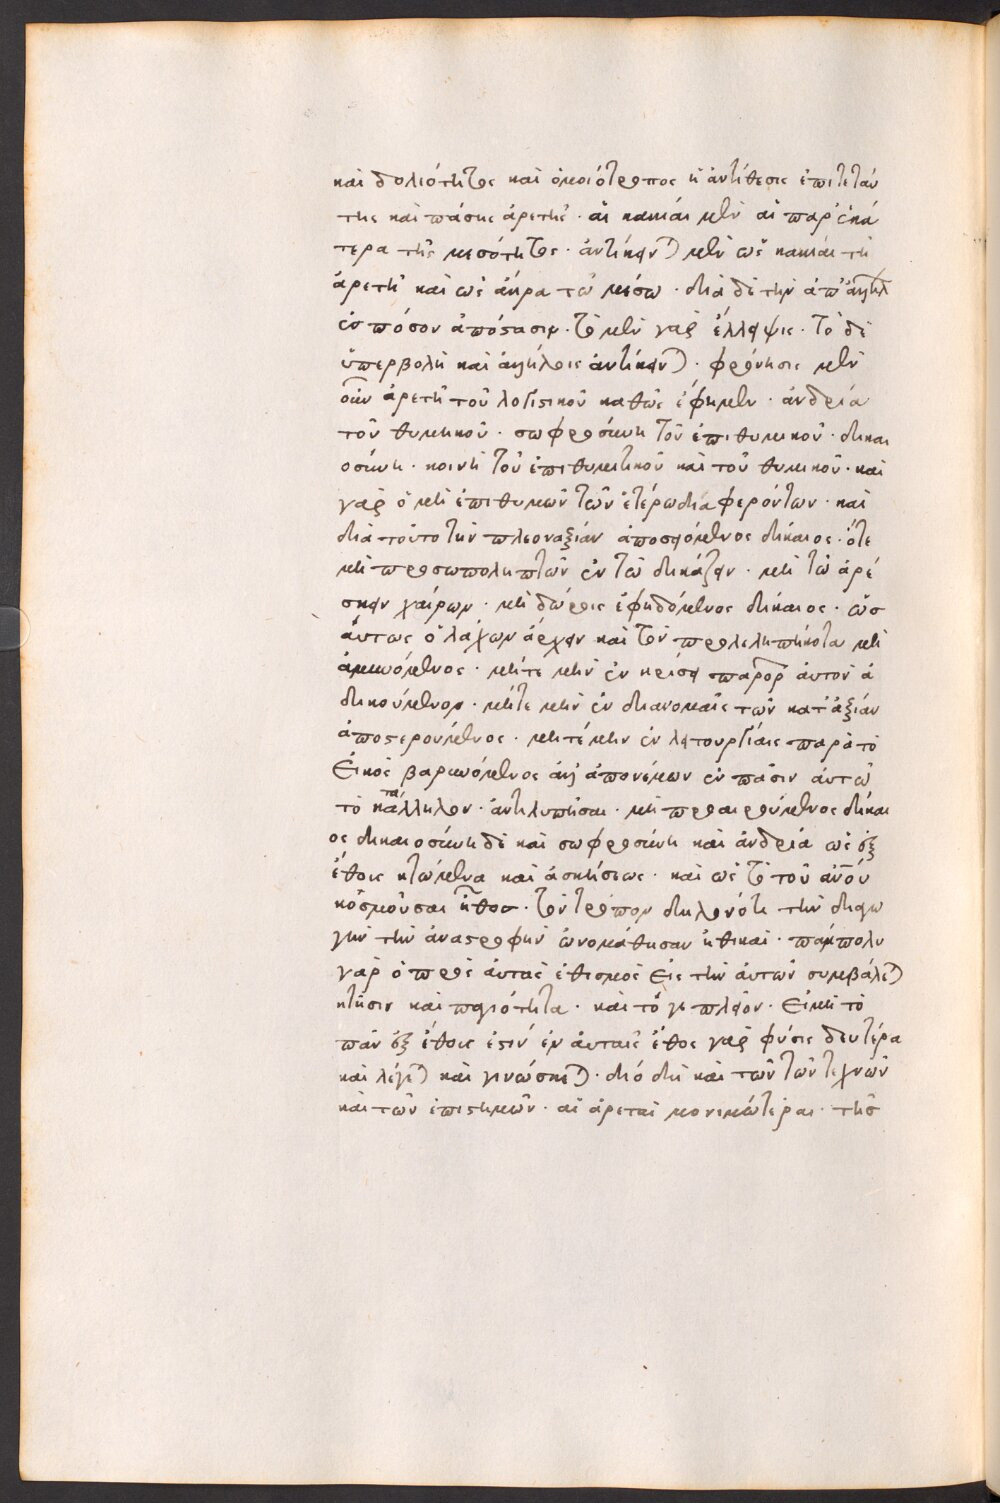 καὶ δολιότητος καὶ ὁμοιότροπος ἡ ἀντίθεσις ἐπιτεταύ
της καὶ πάσης ἀρετῆς· αἱ κακίαι μὲν αἱ παρ' ἑκά
τερα τῆς μεσότητος· ἀντίκειν) μὲν ὡς κακίαι τῆ
ἀρετῆ καὶ ὡς ἄκρα τῶ μέσω· διὰ δὲ τὴν ἀπ' ἀλλήλ
ἐς πόσον ἀπόστασιν· τὸ μὲν γὰρ ἔλλειψις· τὸ δὲ
ὑπερβολὴ καὶ ἀλλήλοις ἀντίκειν)· φρόνησις μὲν
οὖν ἀρετὴ τοῦ λογιστικοῦ καθὼς ἔφημεν· ἀνδρία
τοῦ θυμικοῦ· σωφροσύνη τοῦ ἐπιθυμικοῦ· δικαι
οσύνη· κοινὴ τοῦ ἐπιθυμητικοῦ καὶ τοῦ θυμικοῦ· καὶ
γὰρ ὁ μὴ ἐπιθυμῶν τῶν ἑτέρω διαφερόντων· καὶ
διὰ τοῦτο τὴν πλεοναξίαν ἀποσειόμενος δίκαιος· ὅτε
μὴ προσωποληπτῶν ἐν τῶ δικάζειν· μὴ τῶ ἀρέ
σκειν χαίρων· μὴ δώροις ἐφηδόμενος δίκαιος· ὡσ
αύτως ὁ λαχὼν ἄρχειν καὶ τὸν προλελυπηκότα μὴ
ἀμυνόμενος· μήτε μὴν ἐν κρίσει παρορ αὐτὸν ἀ
δικούμενον· μήτε μὴν ἐν διανομαῖς τῶν κατ' ἀξίαν
ἀποστερούμενος· μητέ μην ἐν λειτουργίαις παρὰ τὸ
Εἰκὸς βαρυνόμενος ἀλλ' ἀπονέμων ἐν πᾶσιν αὐτῶ
τὸ κατάλληλον· ἀντιλυπῆσαι· μὴ προαιρούμενος δίκαι
ος δικαιοσύνη δὲ καὶ σωφροσύνη καὶ ἀνδρία ὡς ἐξ
ἔθους κτώμενα καὶ ἀσκήσεως· καὶ ὡς τὸ τοῦ ἀνου
κοσμοῦσαι ἦθος· τὸν τρόπον δηλονότι τὴν διαγω
γὴν τὴν ἀναστροφὴν ὠνομάσθησαν ἠθικαὶ· πάμπολυ
γὰρ ὁ πρὸς αὐτὰς ἐθισμὸς Εἰς τὴν αὐτῶν συμβάλε)
κτῆσιν καὶ παγιότητα· καὶ τό γε πλεῖον· Εἰ μὴ τὸ
πᾶν ἐξ ἔθους ἐστὶν ἐν αὐταῖς ἔθος γὰρ φύσις δευτέρα
καὶ λέγε) καὶ γινώσκε)· διό δὴ καὶ τῶν τῶν τεχνῶν
καὶ τῶν ἐπιστημῶν· αἱ ἀρεταὶ μονιμώτεραι· τῆς